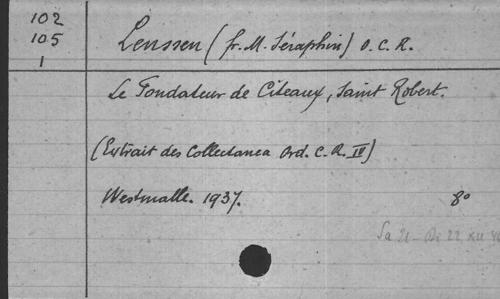 102
105
1
Lenssen (fr. M. Séraphin) O. C. R.
Le Fondateur de Citeaux, Saint Robert.
(Extrait des Collectanea Ord. C. R. IV)
Westmalle. 1937.
8°